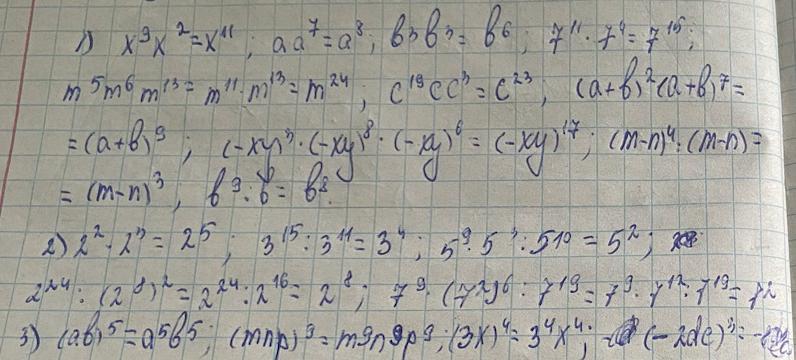 1) x⁹x² = x¹¹; aa⁷ = a⁸; b³b³ = b⁶; 7¹¹ · 7⁴ = 7¹⁵;
m⁵m⁶m¹³ = m¹¹ · m¹³ = m²⁴; c¹⁹cc³ = c²³; (a+b)²(a+b)⁷ =
= (a+b)⁹; (-xy)³ · (-xy)⁸ · (-xy)⁶ = (-xy)¹⁷; (m-n)⁴ : (m-n) =
= (m-n)³, b⁹ : b = b⁸.
2) 2² · 2³ = 2⁵; 3¹⁵ : 3¹¹ = 3⁴; 5⁹ · 5³ : 5¹⁰ = 5²;
2²⁴ : (2⁸)² = 2²⁴ : 2¹⁶ = 2⁸; 7⁹ · (7²)⁶ : 7¹⁹ = 7⁹ · 7¹² : 7¹⁹ = 7²
3) (ab)⁵ = a⁵b⁵; (mnp)⁹ = m⁹n⁹p⁹; (3x)⁴ = 3⁴x⁴; (-2dc)³ =